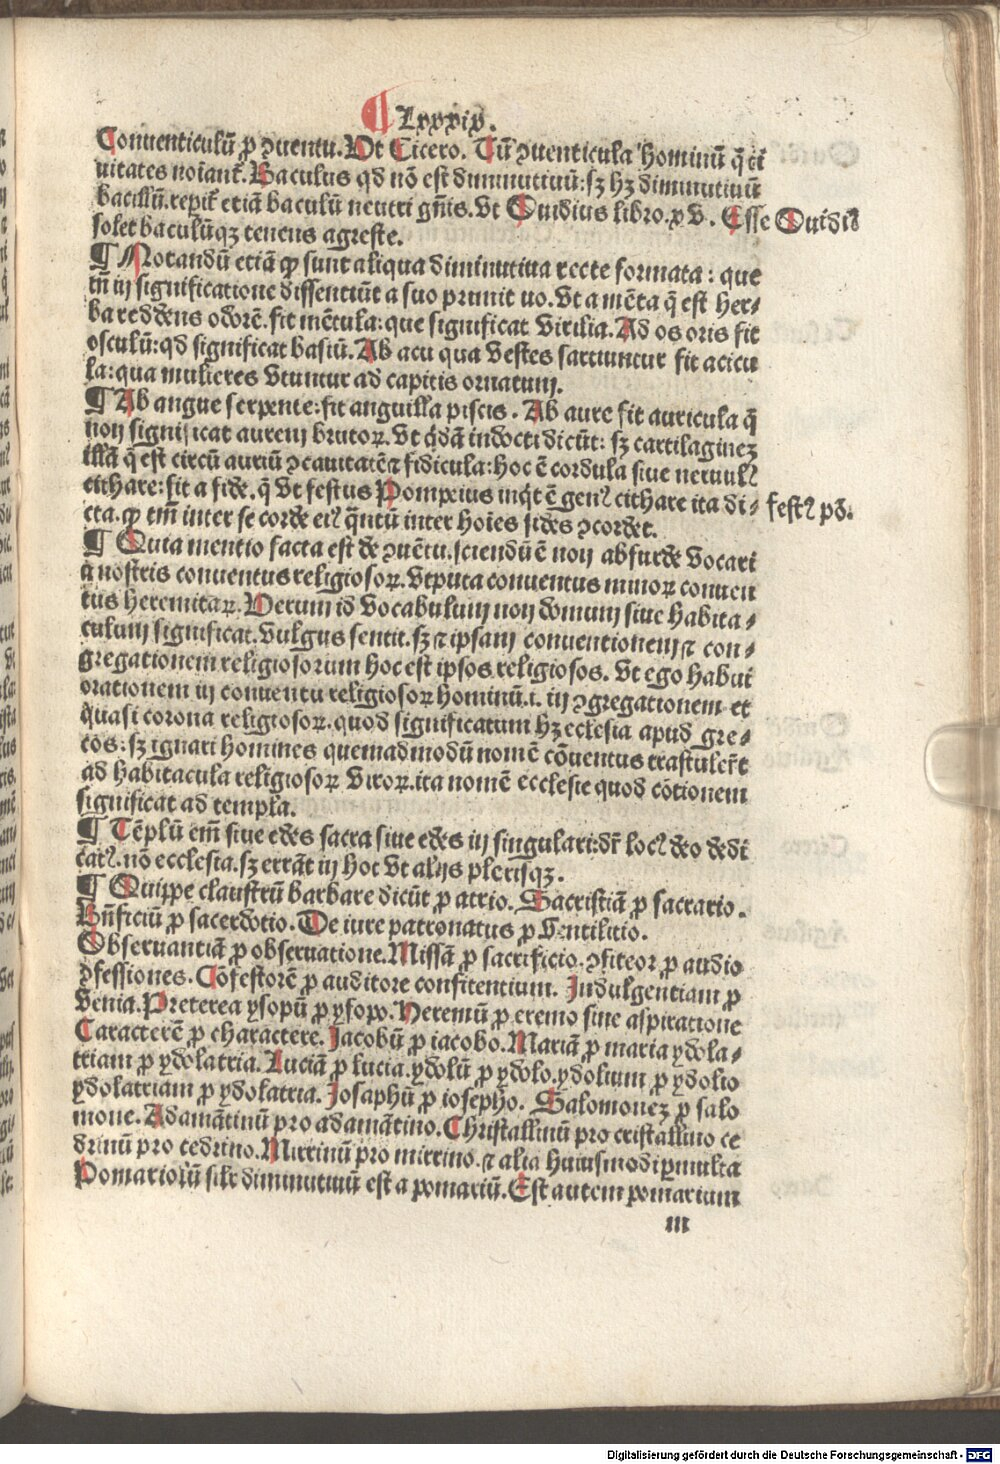 ¶ Lxxxix.
Conuenticulū ꝓ ↄuentu. Vt Cicero. Tū ↄuenticula hominū q̄ ci
uitates noīant᷑. Baculus qd nō est diminutiuū: sꝫ hꝫ diminutiuū
bacillū. reperit᷑ etiā baculū neutri gn̄is. Vt Ouidius libro. x v. Esse
Ouidiꝰ
solet baculūqꝫ tenens agreste.
¶ Notandū etiā ꝙ sunt aliqua diminutiua recte formata: que
tn̄ in significatione dissentiūt a suo primit iuo. Vt a mēta q̄ est her⸗
ba reddens odorē. fit mētula: que significat virilia. Ad os oris fit
osculū: qd significat basiū. Ab acu qua vestes sarciuntur fit acicu
la: qua mulieres vtuntur ad capitis ornatum.
¶ Ab angue serpente: fit anguilla piscis. Ab aure fit auricula q̄
non significat aurem brutoꝝ. Vt q̇dā indocti dicūt: sꝫ cartilaginez
illā q̄ est circū auriū ↄcauitatē ⁊ fidicula: hoc ē cordula siue neruulꝰ
cithare: fit a fide. q̄ vt festus Pompeius inq̇t ē genꝰ cithare ita di⸗
festꝰ pō.
cta. ꝙ tm̄ inter se corde eiꝰ q̄ntū inter hoīes fides ↄcordet.
¶ Quia mentio facta est de ↄuētu. sciendū ē non absurde vocari
a nostris conuentus religiosoꝝ. Vtputa conuentus minoꝝ conuen
tus heremitaꝝ. Verum id vocabulum non domum siue habita⸗
culum significat. vulgus sentit. sꝫ ⁊ ipsam conuentionem ⁊ con⸗
gregationem religiosorum hoc est ipsos religiosos. Vt ego habui
orationem in conuentu religiosoꝝ hominū. i. in ↄgregationem et
quasi corona religiosoꝝ. quod significatum hꝫ ecclesia apud gre⸗
cos: sꝫ ignari homines quemadmodū nomē cōuentus trastuler̄t
ad habitacula religiosoꝝ viroꝝ. ita nomē ecclesie quod cōtionem
significat ad templa.
¶ Tēplū em̄ siue edes sacra siue edes in singulari: dr̄ locꝰ deo dedi
catꝰ. nō ecclesia. sꝫ errāt in hoc vt alijs plerisqꝫ.
¶ Quippe claustrū barbare dicūt ꝓ atrio. Sacristiā ꝓ sacrario.
Bn̄ficiū ꝓ sacerdotio. De iure patronatus ꝓ Gentilitio.
Obseruantiā ꝓ obseruatione. Missā ꝓ sacrificio. ↄfiteor ꝓ audio
ↄfessiones. Cōfestorē ꝓ auditore confitentium. Indulgentiam ꝓ
venia. Preterea ysopū ꝓ ysopo. Heremū ꝓ eremo sine aspiratione
Caracterē ꝓ charactere. Jacobū ꝓ iacobo. Mariā ꝓ maria ydola⸗
triam ꝓ ydolatria. Luciā ꝓ lucia. ydolū ꝓ ydolo. ydolium ꝓ ydolio
ydolatriam ꝓ ydolatria. Josaphū ꝓ iosepho. Salomonez ꝓ salo
mone. Adamātinū pro adamātino. Christallinū pro cristallino ce
drinū pro cedrino. Mirrinū pro mirrino. ⁊ alia huiusmodi ꝑmulta
Pomariolū silr̄ diminutiuū est a pomariū. Est autem pomarium
m
Digitalisierung gefördert durch die Deutsche Forschungsgemeinschaft - DFG